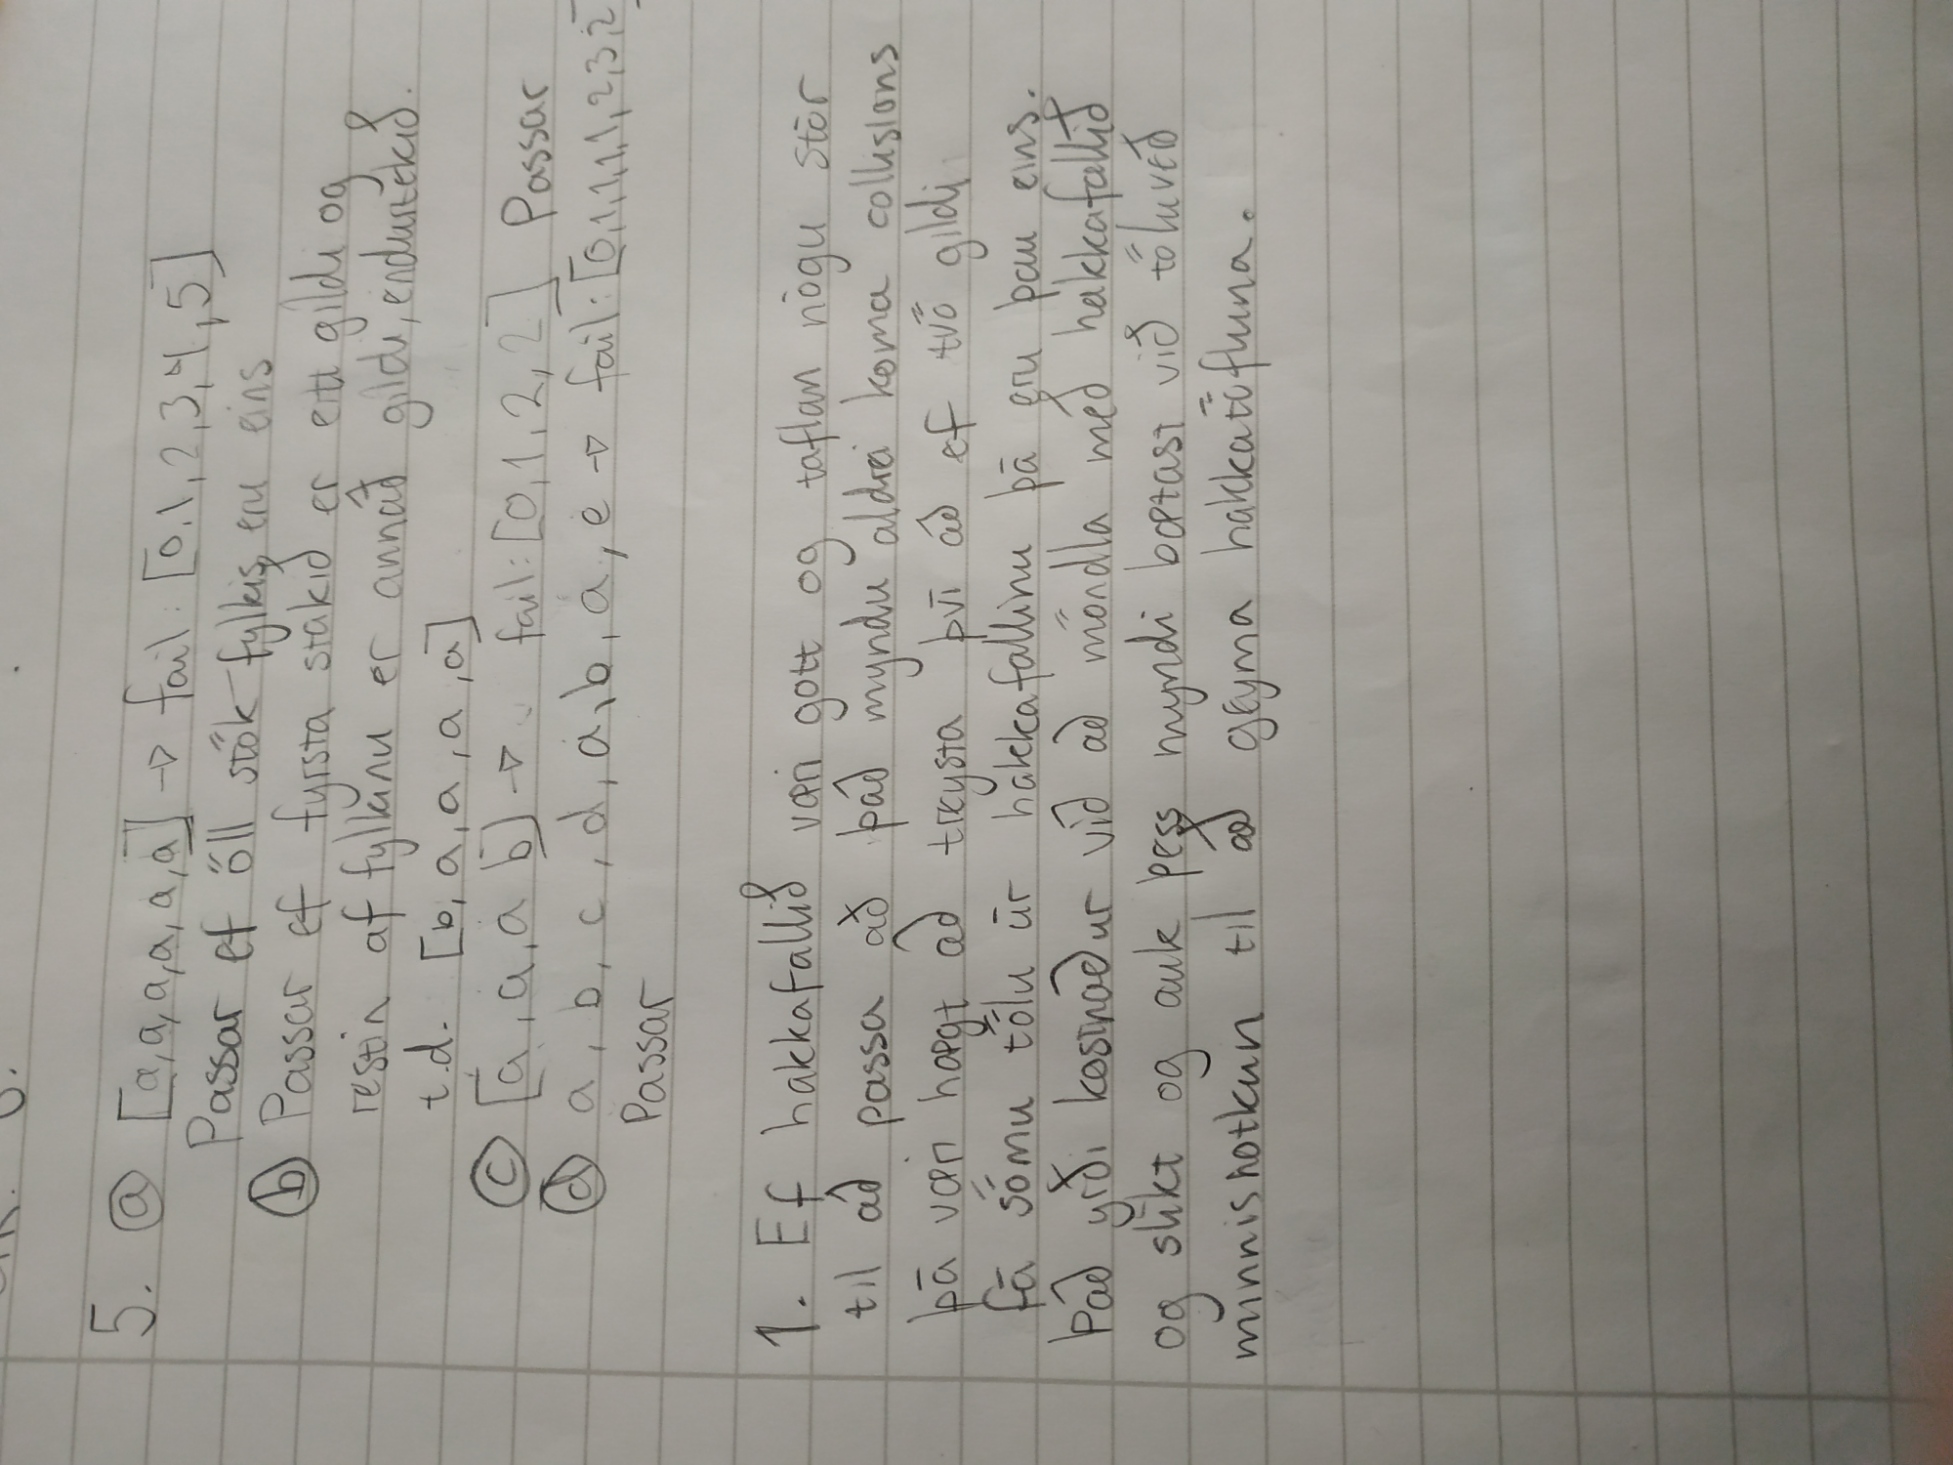 5. ⓐ [a,a,a,a,a,a] → fail: [0,1,2,3,4,5]
Passar ef öll stök fylkis eru eins
ⓑ Passar ef fyrsta stakið er eitt gildi og
restin af fylkinu er annað gildi, endurtekið.
t.d. [b, a, a, a, a]
ⓒ [a, a, a b] → fail: [0,1,2,2] Passar
ⓓ a, b, c, d, a, b, a, e → fail: [0,1,1,1,1,2,3,2]
Passar
1. Ef hakkafallið væri gott og taflan nógu stór
til að passa að það myndu aldrei koma collisions
þá væri hægt að treysta því að ef tvö gildi
fá sömu tölu úr hakkafallinu þá eru þau eins.
Það yrði kostnaður við að möndla með hakkafallið
og slíkt og auk þess myndi bætast við töluverð
minnisnotkun til að geyma hakkatöfluna.